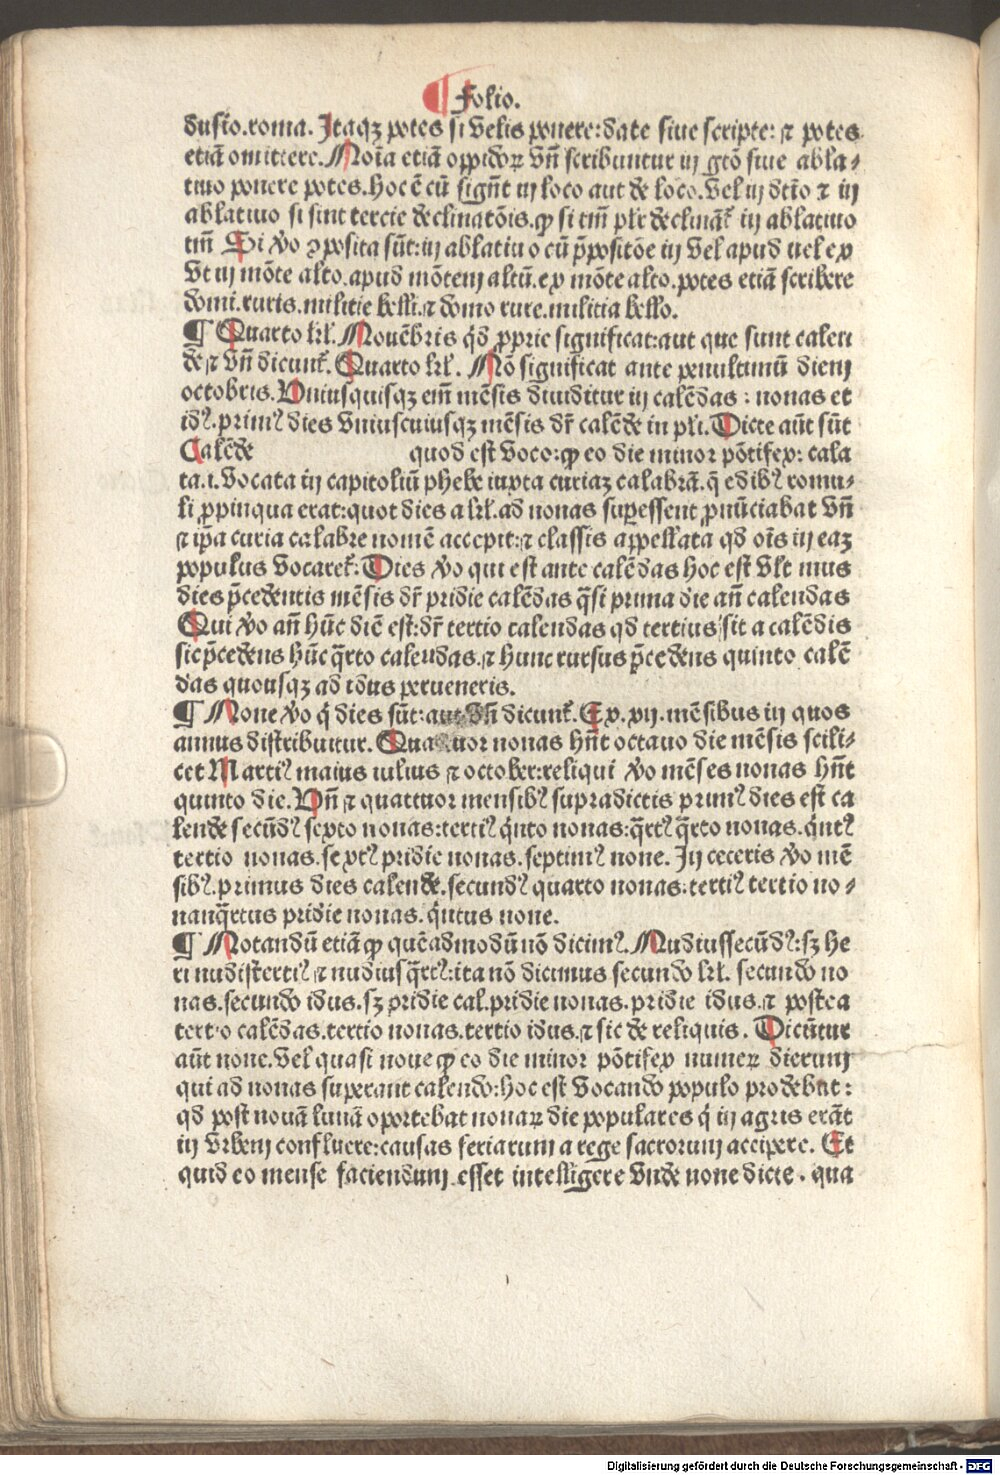 ¶ Folio.
dusio.roma. Itaqꝫ potes si velis ponere: date siue scripte: ⁊ potes
etiā omittere. Noīa etiā oppidoꝝ vn̄ scribuntur in gtō siue abla⸗
tiuo ponere potes. hoc ē cū sign̄t in loco aut de loco. vel in dtīo ⁊ in
ablatiuo si sint tercie declinatōis. ꝙ si tm̄ plr̄ declināt᷑ in ablatiuo
tm̄ Si ꝟo ꝯposita sūt: in ablatiuo cū p̄positōe in vel apud uel ex
vt in mōte alto. apud mōtem altū. ex mōte alto. potes etiā scribere
domi. ruris. militie belli. ⁊ domo rure. militia bello.
¶ Quarto kł. Nouēbris q̄d ꝓprie significat: aut que sunt calen
de ⁊ vn̄ dicunt᷑. Quarto kł. Nō significat ante penultimū diem
octobris. Vniusquisqꝫ em̄ mēsis diuiditur in calēdas : nonas et
idꝰ. primꝰ dies vniuscuiusqꝫ mēsis dr̄ calēde in płi. Dicte aūt sūt
Calēde quod est voco: ꝙ eo die minor pōtifex: cala
ta .i. vocata in capitoliū plebe iuxta curiaꝫ calabrā. q̄ edibꝰ romu⸗
li ꝓpinqua erat: quot dies a kł. ad nonas superessent ꝓnūciabat vn̄
⁊ ip̄a curia calabre nomē accepit: ⁊ classis appellata qd oīs in eaꝫ
populus vocaret᷑: Dies ꝟo qui est ante calēdas hoc est vlt imus
dies p̄cedentis mēsis dr̄ pridie calēdas q̄si prima die an̄ calendas
Qui ꝟo an̄ hūc diē est: dr̄ tertio calendas qd tertius sit a calēdis
sic p̄cedens hūc q̄rto calendas. ⁊ hunc rursus p̄cedens quinto calē
das quousqꝫ ad idus perueneris.
¶ None ꝟo q̇ dies sūt: aut vn̄ dicunt᷑. Ex .xij. mēsibus in quos
annus distribuitur. Quatuor nonas hn̄t octauo die mēsis scili⸗
cet Martiꝰ maius iulius ⁊ october: reliqui ꝟo mēses nonas hn̄t
quinto die. Vn̄ ⁊ quattuor mensibꝰ supradictis primꝰ dies est ca
lende secūdꝰ sexto nonas: tertiꝰ q̇nto nonas: q̄rtꝰ q̄rto nonas. q̇ntꝰ
tertio nonas. sextꝰ pridie nonas. septimꝰ none. In ceceris ꝟo mē
sibꝰ. primus dies calende. secundꝰ quarto nonas. tertiꝰ tertio no⸗
nan q̄rtus pridie nonas. q̇ntus none.
¶ Notandū etiā ꝙ quēadmodū nō dicimꝰ. Nudiussecūdꝰ: sꝫ he
ri nudistertiꝰ ⁊ nudiusq̄rtꝰ: ita nō dicimus secundo kł. secundo no
nas. secundo idus. sꝫ pridie cal. pridie nonas. pridie idus. ⁊ postea
tertio calēdas. tertio nonas. tertio idus. ⁊ sic de reliquis. Dicūtur
aūt none. vel quasi noue ꝙ eo die minor pōtifex numeꝝ dierum
qui ad nonas superant calendo: hoc est vocando populo prodebat:
qd post nouā lunā oportebat nonaꝝ die populares q̇ in agris erāt
in vrbem confluere: causas feriarum a rege sacrorum accipere. Et
quid eo mense faciendum esset intelligere vnde none dicte . qua
Digitalisierung gefördert durch die Deutsche Forschungsgemeinschaft - DFG